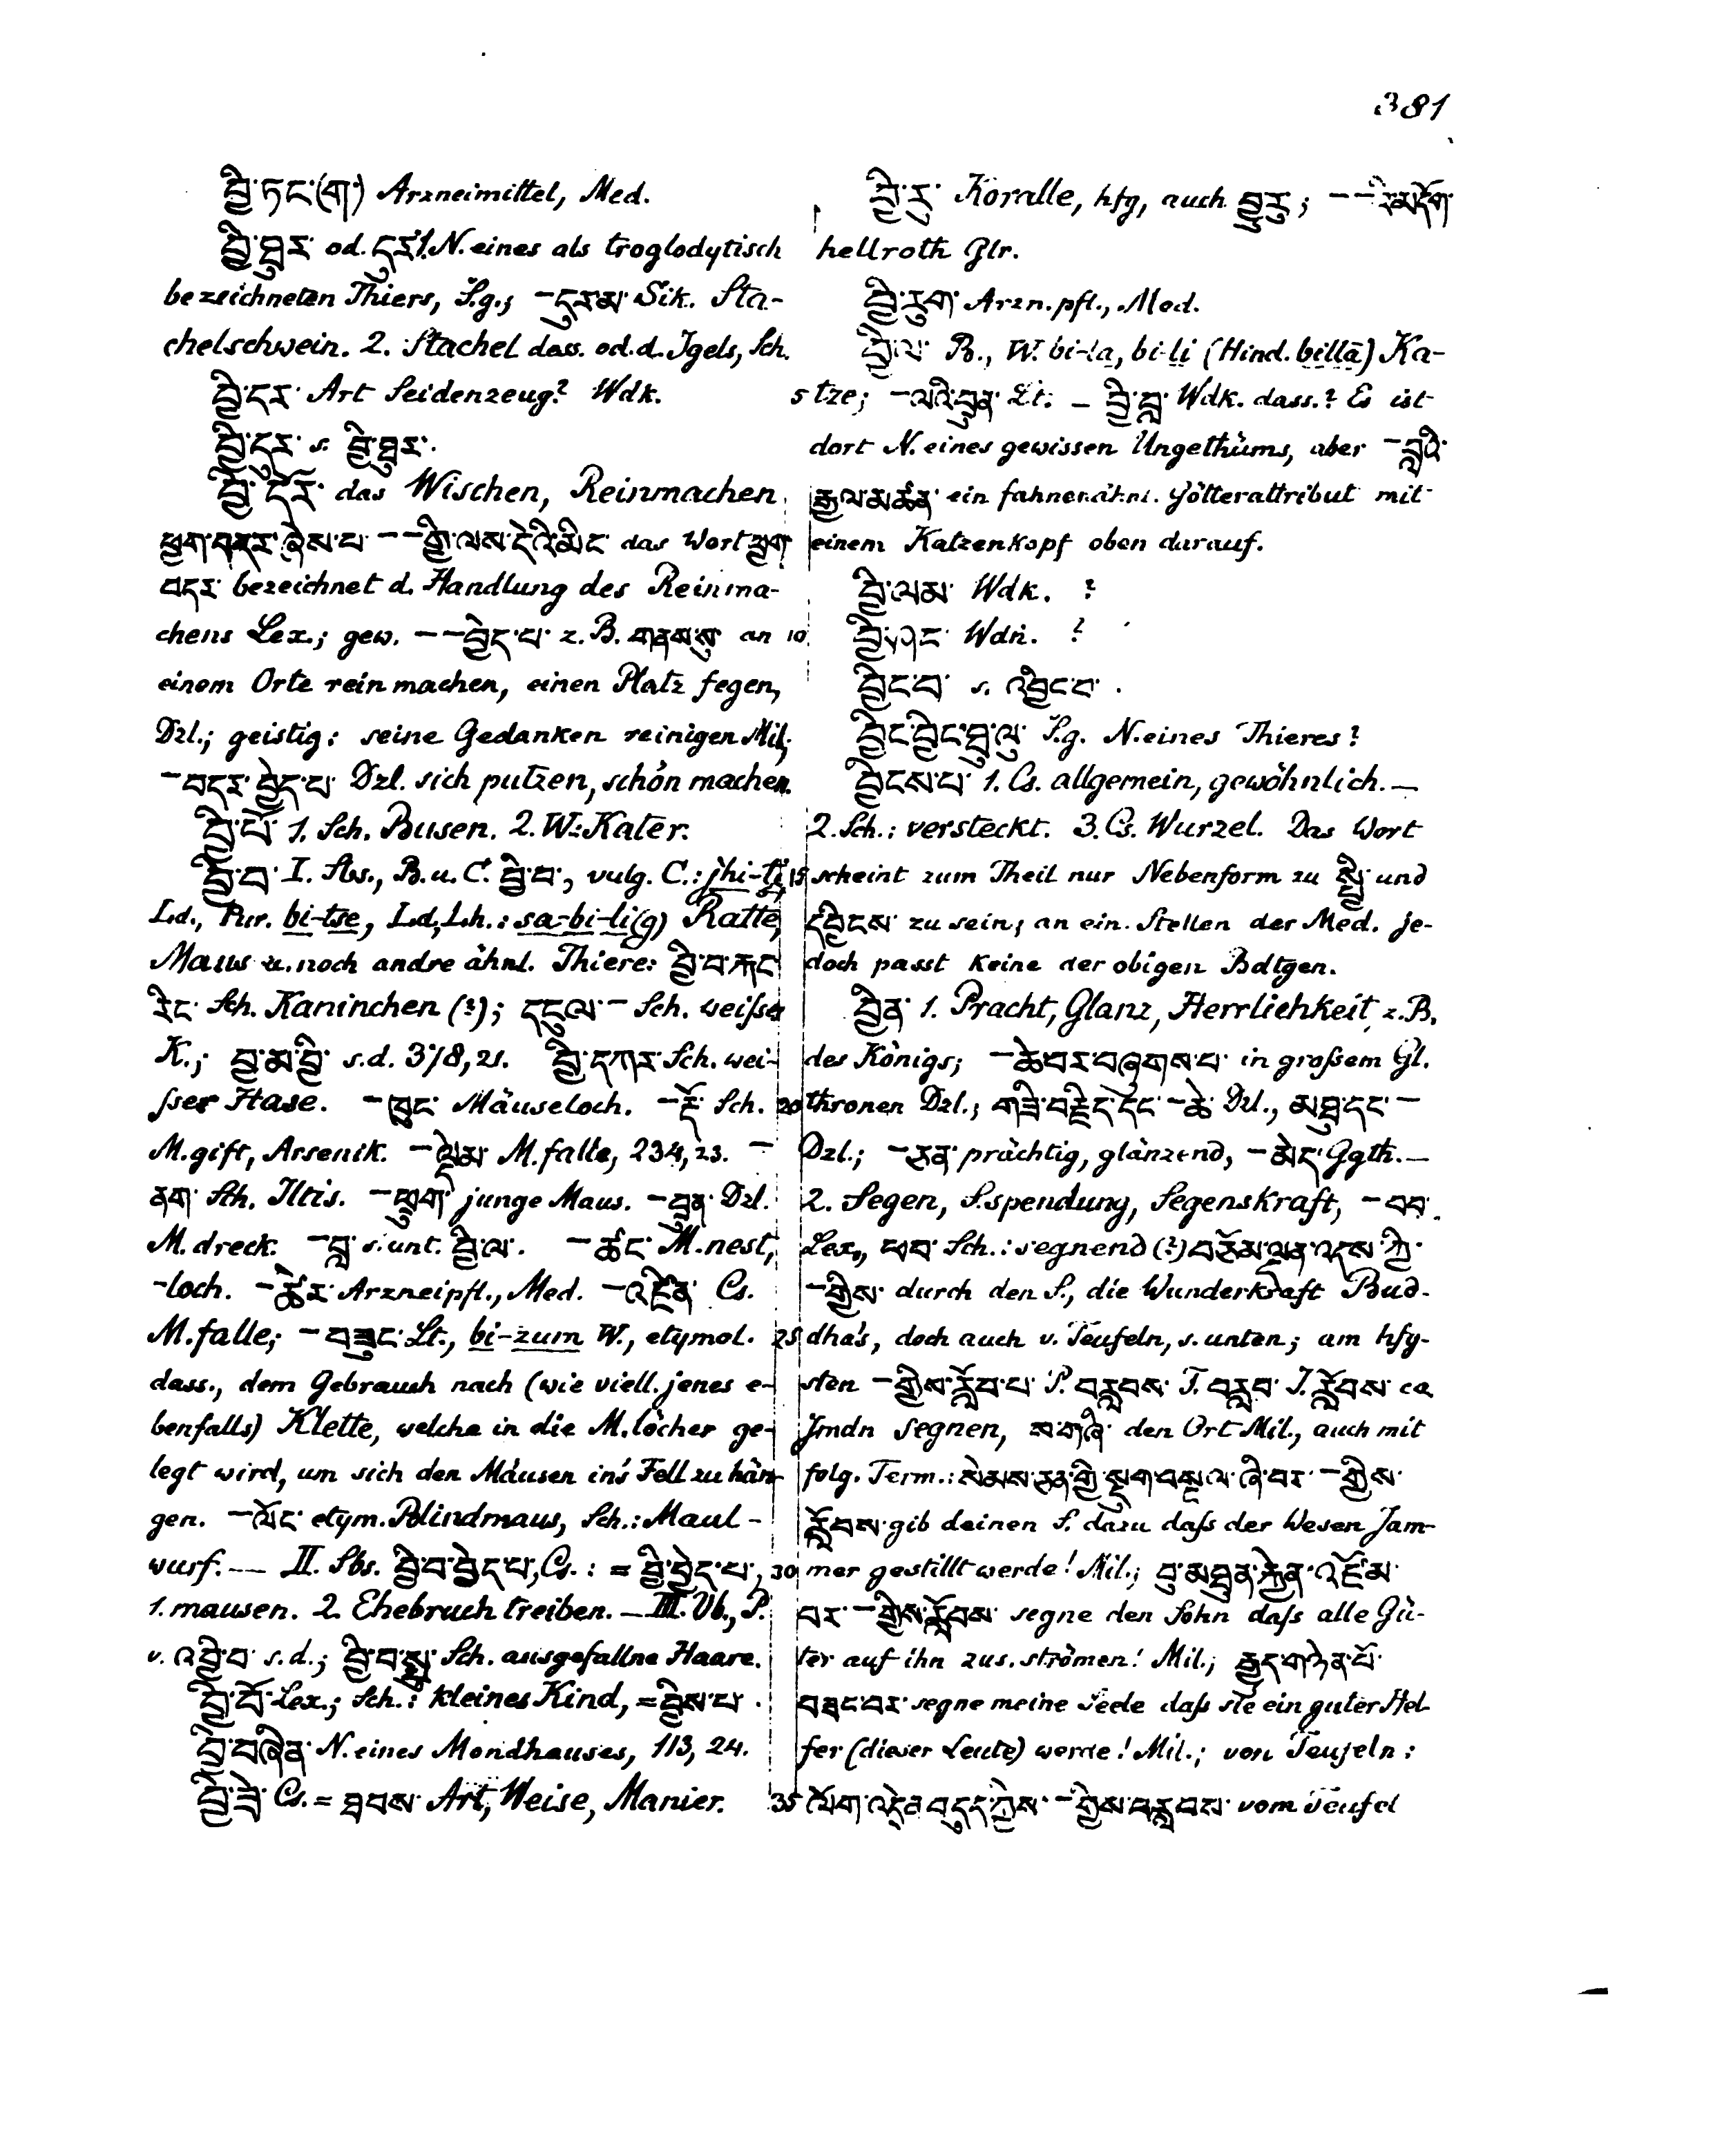 381
བྱི་ཏང་(ག་) Arzneimittel, Med.
བྱི་ཐུར་ od. དུར་ 1. N. eines als troglodytisch
bezeichneten Thiers, S.g.; – དུརམ་ Sik. Sta-
chelschwein. 2. Stachel dess. od. d. Igels, Sch.
བྱི་དར་ Art Seidenzeug? Wdk.
བྱི་དུར་ s. བྱི་ཐུར་.
བྱི་དོར་ das Wischen, Reinmachen
ཕྱག་བདར་ཞེས་པ་ – – གྱི་ལས་དེའི་མིང་ das Wort ཕྱག་
བདར་ bezeichnet d. Handlung des Reinma-
chens Lex.; gew. – – བྱེད་པ་ z. B. གནས་སུ་ an
einem Orte rein machen, einen Platz fegen,
Dzl.; geistig: seine Gedanken reinigen Mil;
– བདར་བྱེད་པ་ Dzl. sich putzen, schön machen.
བྱི་པོ་ 1. Sch. Busen. 2. W.: Kater.
བྱི་བ་ I. Sbs., B. u. C. བྱི་བ་, vulg. C.: jhi-tsi,
Ld., Pur. bi-tse, Ld, Lh.: sa-bi-li(g) Ratte,
Maus u. noch andre ähnl. Thiere: བྱི་བ་རྐང་
རིང་ Sch. Kaninchen (?); དངུལ་ – Sch. weisse
K.; བྲ་མ་བྱི་ s. d. 378, 21. བྱི་དཀར་ Sch. wei-
sser Hase. – ཁུང་ Mäuseloch. – རྡོ་ Sch.
M. gift, Arsenik. – ལྡེམ་ M. falle, 234, 23. –
ནག་ Sch. Iltis. – ཕྲུག་ junge Maus. – བྲུན་ Dzl.
M. dreck. – བླ་ s. unt. བྱི་ལ་. – ཚང་ M. nest,
-loch. – ཚེར་ Arzneipfl., Med. – འཛིན་ Cs.
M. falle; – བཟུང་ Lt., bi-zum W., etymol.
dass., dem Gebrauch nach (wie viell. jenes e-
benfalls) Klette, welche in die M. löcher ge-
legt wird, um sich den Mäusen in's Fell zu hän-
gen. – ལོང་ etym. Blindmaus, Sch.: Maul-
wurf. — II. Sbs. བྱི་བ་བྱེད་པ་, Cs.: = བྱི་བྱེད་པ་,
1. mausen. 2. Ehebruch treiben. — III. Vb., P.
v. འབྱི་བ་ s. d.; བྱི་བ་སྤུ་ Sch. ausgefallne Haare.
བྱི་བོ་ Lex.; Sch.: kleines Kind, = བྱིས་པ་.
བྱི་བཞིན་ N. eines Mondhauses, 113, 24.
བྱི་ཟེ་ Cs. = ཐབས་ Art, Weise, Manier.
བྱི་རུ་ Koralle, hfg, auch བྱུ་རུ་; – – རི་མདོག་
hellroth Glr.
བྱི་རུག་ Arzn. pfl., Med.
བྱི་ལ་ B., W. bi-la, bi-li (Hind. billā) Ka-
5 tze; – ལའི་བྲུན་ Lt. – བྱི་བླ་ Wdk. dass.? Es ist
dort N. eines gewissen Ungethüms, aber – བླའི་
རྒྱལ་མཚན་ ein fahnenähnl. Götterattribut mit
einem Katzenkopf oben darauf.
བྱི་ལམ་ Wdk. ?
10 བྱི་ཤང་ Wdn. ?
བྱིང་བ་ s. འབྱིང་བ་.
བྱིང་བྱིང་ཐུ་ལུ་ S.g. N. eines Thieres?
བྱིངས་པ་ 1. Cs. allgemein, gewöhnlich. —
2. Sch.: versteckt. 3. Cs. Wurzel. Das Wort
15 scheint zum Theil nur Nebenform zu སྤྱི་ und
དབྱིངས་ zu sein; an ein. Stellen der Med. je-
doch passt keine der obigen Bdtgen.
བྱིན་ 1. Pracht, Glanz, Herrlichkeit, z. B.
des Königs; – ཆེ་བར་བཞུགས་པ་ in großem Gl.
20 thronen Dzl.; གཟི་བརྗིད་དང་ – ཆེ་ Dzl., མཐུ་དང་ –
Dzl.; – ཅན་ prächtig, glänzend, – མེད་ Ggth. —
2. Segen, S. spendung, Segenskraft, – བབ་
Lex., ཕབ་ Sch.: segnend (?) བཅོམ་ལྡན་འདས་ཀྱི་
– གྱིས་ durch den S., die Wunderkraft Bud-
25 dha's, doch auch v. Teufeln, s. unten; am hfg-
sten – གྱིས་རློབ་པ་ P. བརླབས་ F. བརླབ་ I. རློབས་ ca
Jmdn segnen, ས་གཞི་ den Ort Mil., auch mit
folg. Term.: སེམས་ཅན་གྱི་སྡུག་བསྔལ་ཞི་བར་ – གྱིས་
རློབས་ gib deinen S. dazu daß der Wesen Jam-
30 mer gestillt werde! Mil.; བུ་མཐུན་རྐྱེན་འཛོམ་
བར་ – གྱིས་རློབས་ segne den Sohn daß alle Gü-
ter auf ihn zus. strömen! Mil.; རྒྱུད་གཉེན་པོ་
བཟང་བར་ segne meine Seele daß sie ein guter Hel-
fer (dieser Leute) werde! Mil.; von Teufeln:
35 ལོག་འདྲེན་བདུད་ཀྱིས་ – གྱིས་བརླབས་ vom Teufel